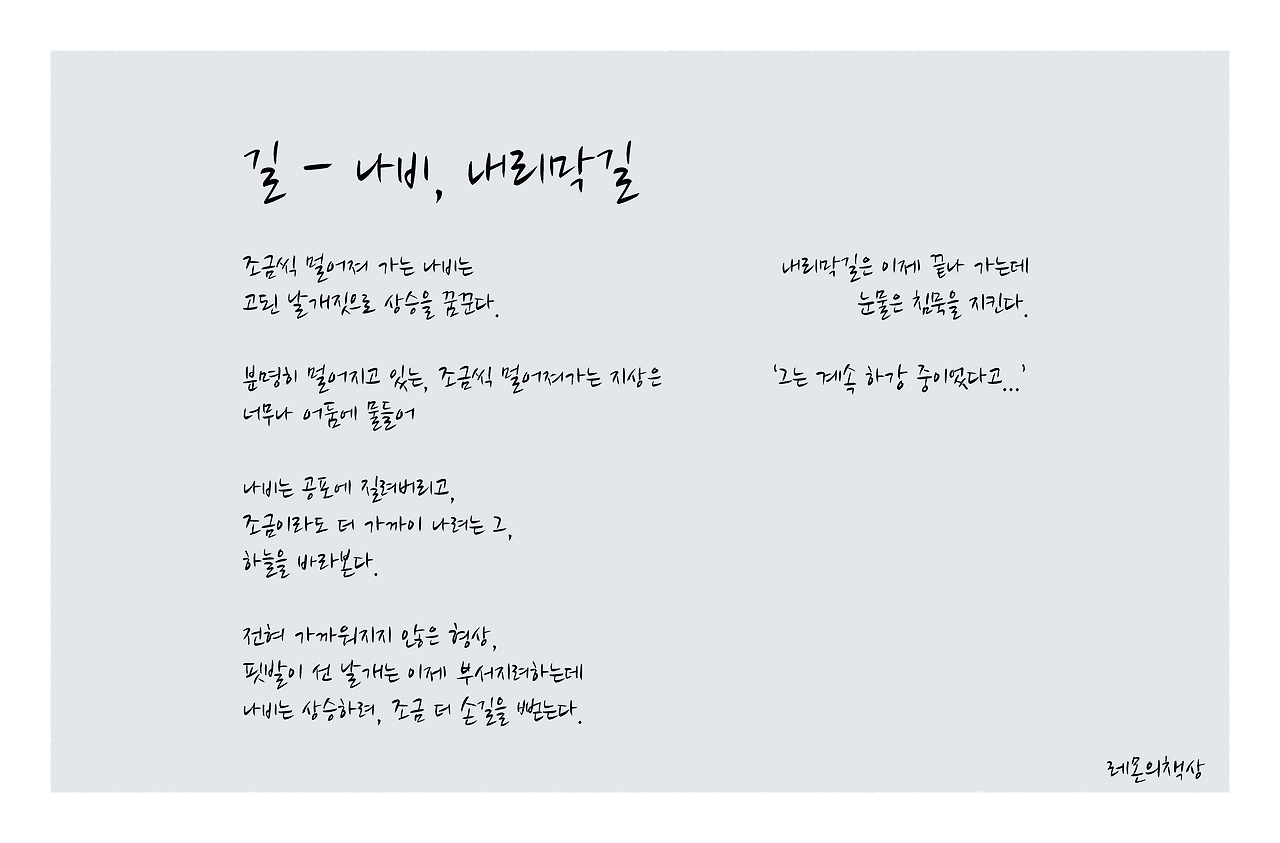 길 - 나비, 내리막길
조금씩 멀어져 가는 나비는
고된 날개짓으로 상승을 꿈꾼다.
분명히 멀어지고 있는, 조금씩 멀어져가는 지상은
너무나 어둠에 물들어
나비는 공포에 질려버리고,
조금이라도 더 가까이 나려는 그,
하늘을 바라본다.
전혀 가까워지지 않은 형상,
핏발이 선 날개는 이제 부서지려하는데
나비는 상승하려, 조금 더 손길을 뻗는다.
내리막길은 이제 끝나 가는데
눈물은 침묵을 지킨다.
‘그는 계속 하강 중이었다고...’
레몬의책상